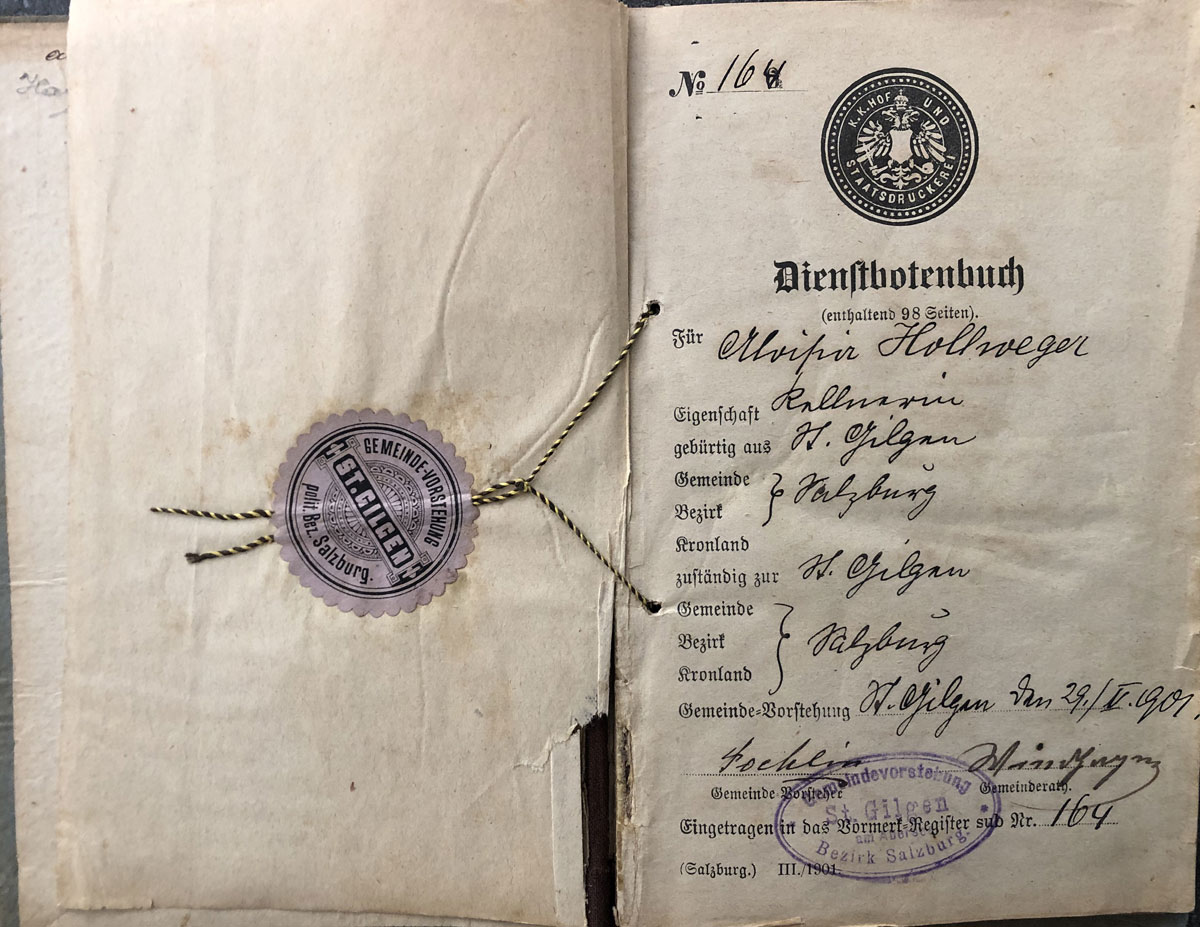 GEMEINDE-VORSTEHUNG
ST. GILGEN
polit. Bez. Salzburg.
No 164
K. K. HOF UND
STAATSDRUCKEREI
Dienstbotenbuch
(enthaltend 98 Seiten).
Für Aloisia Hollweger
Eigenschaft Kellnerin
gebürtig aus St. Gilgen
Gemeinde
Bezirk } Salzburg
Kronland
zuständig zur St. Gilgen
Gemeinde
Bezirk } Salzburg
Kronland
Gemeinde-Vorstehung St. Gilgen den 29./ 901.
Gemeinde Vorsteher Gemeinderath.
Gemeindevorstehung
St. Gilgen
am Abersee
Bezirk Salzburg.
Eingetragen in das Vormerk-Register sub Nr. 164
(Salzburg.) III./1901